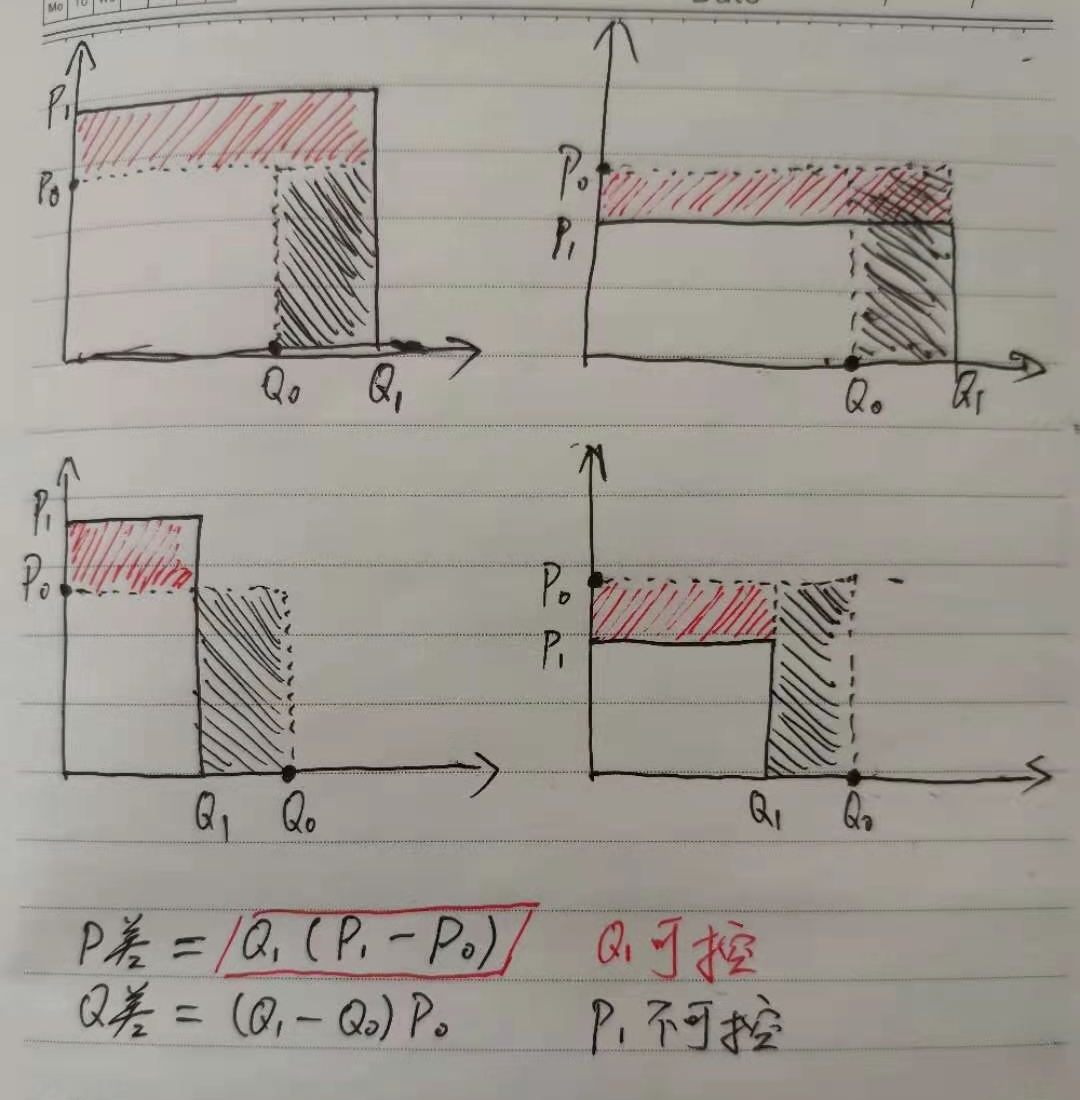 Mo Tu We Date
P₁
P₀
Q₀ Q₁
P₀
P₁
Q₀ Q₁
P₁
P₀
Q₁ Q₀
P₀
P₁
Q₁ Q₀
P差 = Q₁(P₁-P₀) Q₁可控
Q差 = (Q₁-Q₀)P₀ P₁不可控